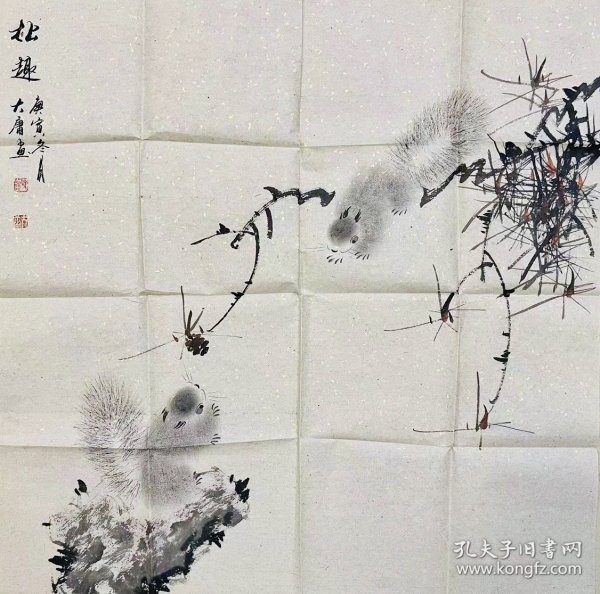 松趣
庚寅冬月
大庸画
孔夫子旧书网
www.kongfz.com